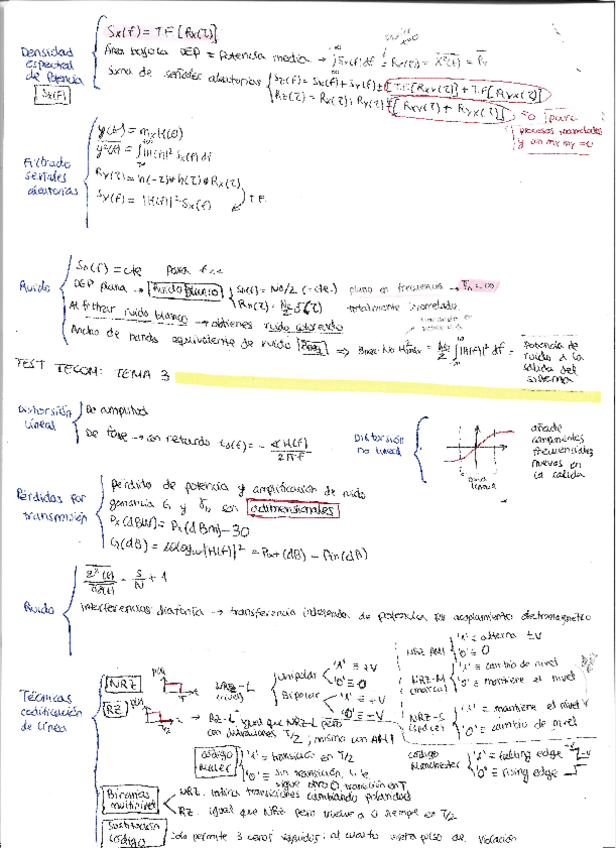 Sx(f) = T.F [Rx(τ)]
Densidad espectral de Potencia
Sx(f)
Área bajo la DEP = Potencia media →
Suma de señales aleatorias
Sz(f) = Sx(f) + Sy(f) ± [T.F[Rxy(τ)] + T.F[Ryx(τ)]]
Rz(τ) = Rx(τ) + Ry(τ) ± [Rxy(τ) + Ryx(τ)] = 0 para
procesos incorrelados y con mx my = 0
Filtrado señales aleatorias
y(t) = mx H(0)
Ry(τ) = h(-τ) * h(τ) * Rx(τ)
Sy(f) = |H(f)|² · Sx(f)
T.F.
Ruido
Sn(f) = cte para
DEP plana → Ruido blanco
Sn(f) = No/2 (= cte.) plano en frecuencia →
Rn(τ) = No/2 δ(τ) totalmente incorrelado
Al filtrar ruido blanco → obtienes ruido coloreado
Ancho de banda equivalente de ruido
Potencia de ruido a la salida del sistema
TEST TECOM: TEMA 3
Distorsión lineal
De amplitud
De fase → con retardo
Distorsión no lineal
zona lineal
añade componentes frecuenciales nuevas en la salida
Pérdidas por transmisión
pérdida de potencia y amplificación de ruido
ganancia G y en adimensionales
Px(dBW) = Px(dBm) - 30
G(dB) = 10log₁₀|H(f)|² =
Ruido
S/N + 1
Interferencias diafonía → transferencia indeseada de potencia por acoplamiento electromagnético
Técnicas codificación de línea
NRZ
NRZ-L (nivel)
Unipolar
'1' ≡ +V
'0' ≡ 0
Bipolar
'1' ≡ +V
'0' ≡ -V
NRZ AMI
'1' ≡ alterna ±V
'0' ≡ 0
NRZ-M (marca)
'1' ≡ cambio de nivel
'0' ≡ mantiene el nivel
NRZ-S (space)
'1' ≡ mantiene el nivel
'0' ≡ cambio de nivel
RZ
T/2
→ RZ-L igual que NRZ-L pero con duraciones T/2, mismo con AMI
código Miller
'1' ≡ transición en T/2
'0' ≡ sin transición, si le sigue otro 0 transición en T
código Manchester
'1' ≡ falling edge
'0' ≡ rising edge
Binarias multinivel
NRZ: indica transiciones cambiando polaridad
RZ: igual que NRZ pero vuelve a 0 siempre en T/2
Sustitución código
solo permite 3 ceros seguidos: al cuarto mete pulso de violación